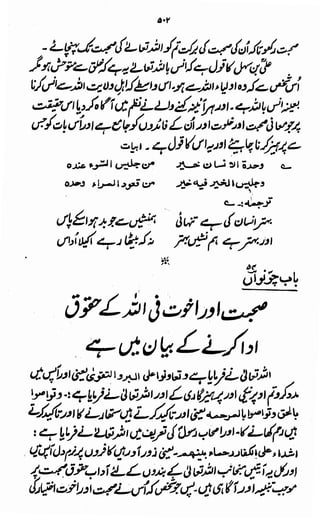 ۵۰۲
صحبت رکھو تاکہ اُن کی صحبت کی برکت تم کو اللہ تعالےٰ کی صحبت تک پہنچائے۔
علی بن سہل کا قول ہے کہ انس باللہ تعالےٰ یہ ہے کہ خلق سے متوحش ہو مگر
اُس شخص سے کہ وہ اولیاء اللہ سے ہو۔ اس واسطے کہ اہل ولایت سے انس کرنا
بعینہ انس باللہ ہے۔ اور ہر آئینہ کہنے والے نے نظم میں آگاہ کر دیا اس حقیقت
پر جو معانی صحبت اور خلوت اور اُن کے فائدوں کو جامع ہے اور اس بات کو جس
سے پرہیز کرنا چاہیئے اور یہ اس کا قول ہے۔ ابیات
وحدة الانسان خير من جليس السوء عنده
وجليس الخير فيه خير من قعود المراء وحده
ترجمہ:۔
بہتر انسان کی ہے تنہائی ہمنشیں ہے جو بد ہو اسکے پاس
اور بہتر ہے ہم نشیں بہتر نہ کہ بیٹھا رہے اکیلا اُداس
باب چونواں ۵۴
صحبت اور اخوت فی اللہ کے حقوق
ادا کرنے کے بیان میں ہے
اللہ تعالیٰ نے فرمایا ہے وتعاونوا على البر والتقوى یعنی اور آپس میں
مدد کرو تم اوپر نیکی اور پرہیز گاری کے اور اللہ تعالیٰ نے فرمایا ہے:۔ وتواصوا
بالحق وتواصوا بالمرحمة یعنی اور تاکید کرتے ہیں ستھارنے کا اور تاکید کرتے
ہیں رحم کھانے کا۔ اور اصحاب رسول کی تعریف میں اللہ تعالےٰ نے فرمایا ہے:
اشداء على الكفار رحماء بينهم۔ یعنی زور آور ہیں کافروں پر نرم دل آپس میں
اور کل یہ آیتیں منجانب اللہ تعالیٰ کے بندوں کے لئے آداب حقوق صحبت پر
موجب تنبیہ اور آگاہی ہیں۔ پس جو شخص کہ اُس نے صحبت اور اخوت اختیار کی